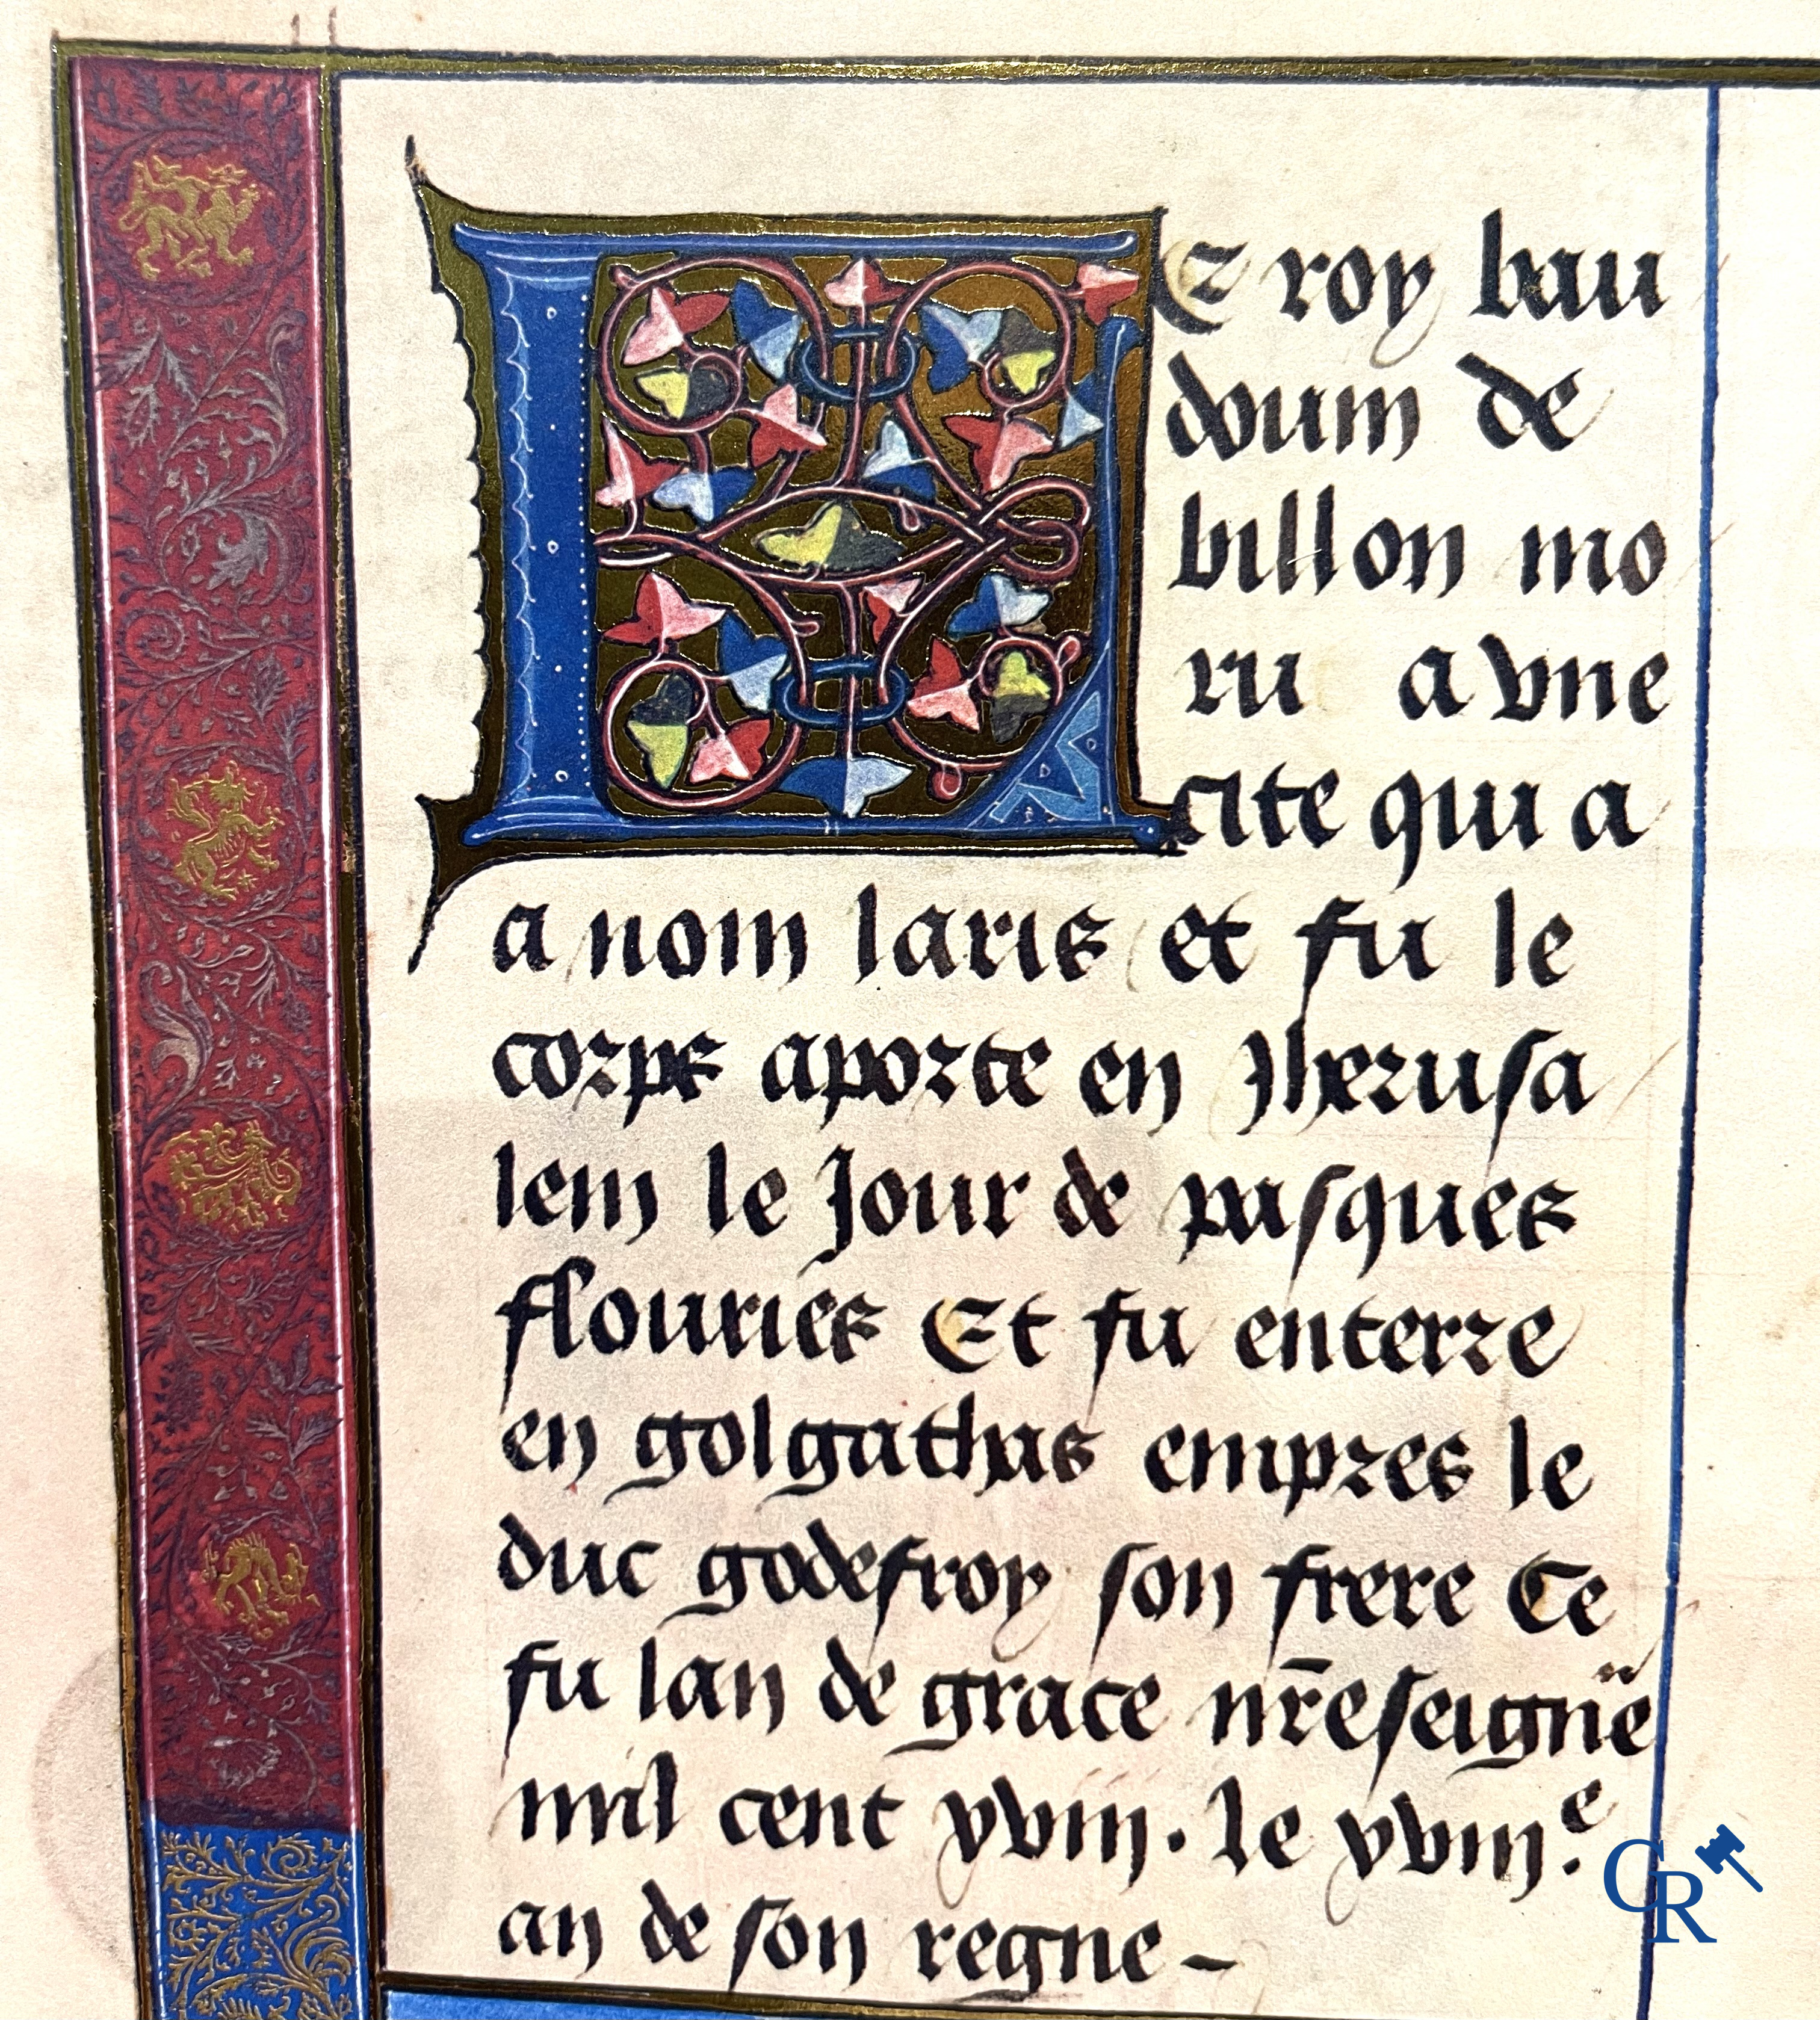 LE roy bau
douin de
billon mo
ru a vne
cite qui a
a nom laris et fu le
corps aporte en Jherusa
lem le Jour de pasques
flouries Et fu enterre
en golgathas empres le
duc godefroy son frere Ce
fu lan de grace nr̄e seigne
mil cent xviii. le xviii.e
an de son regne -
CR